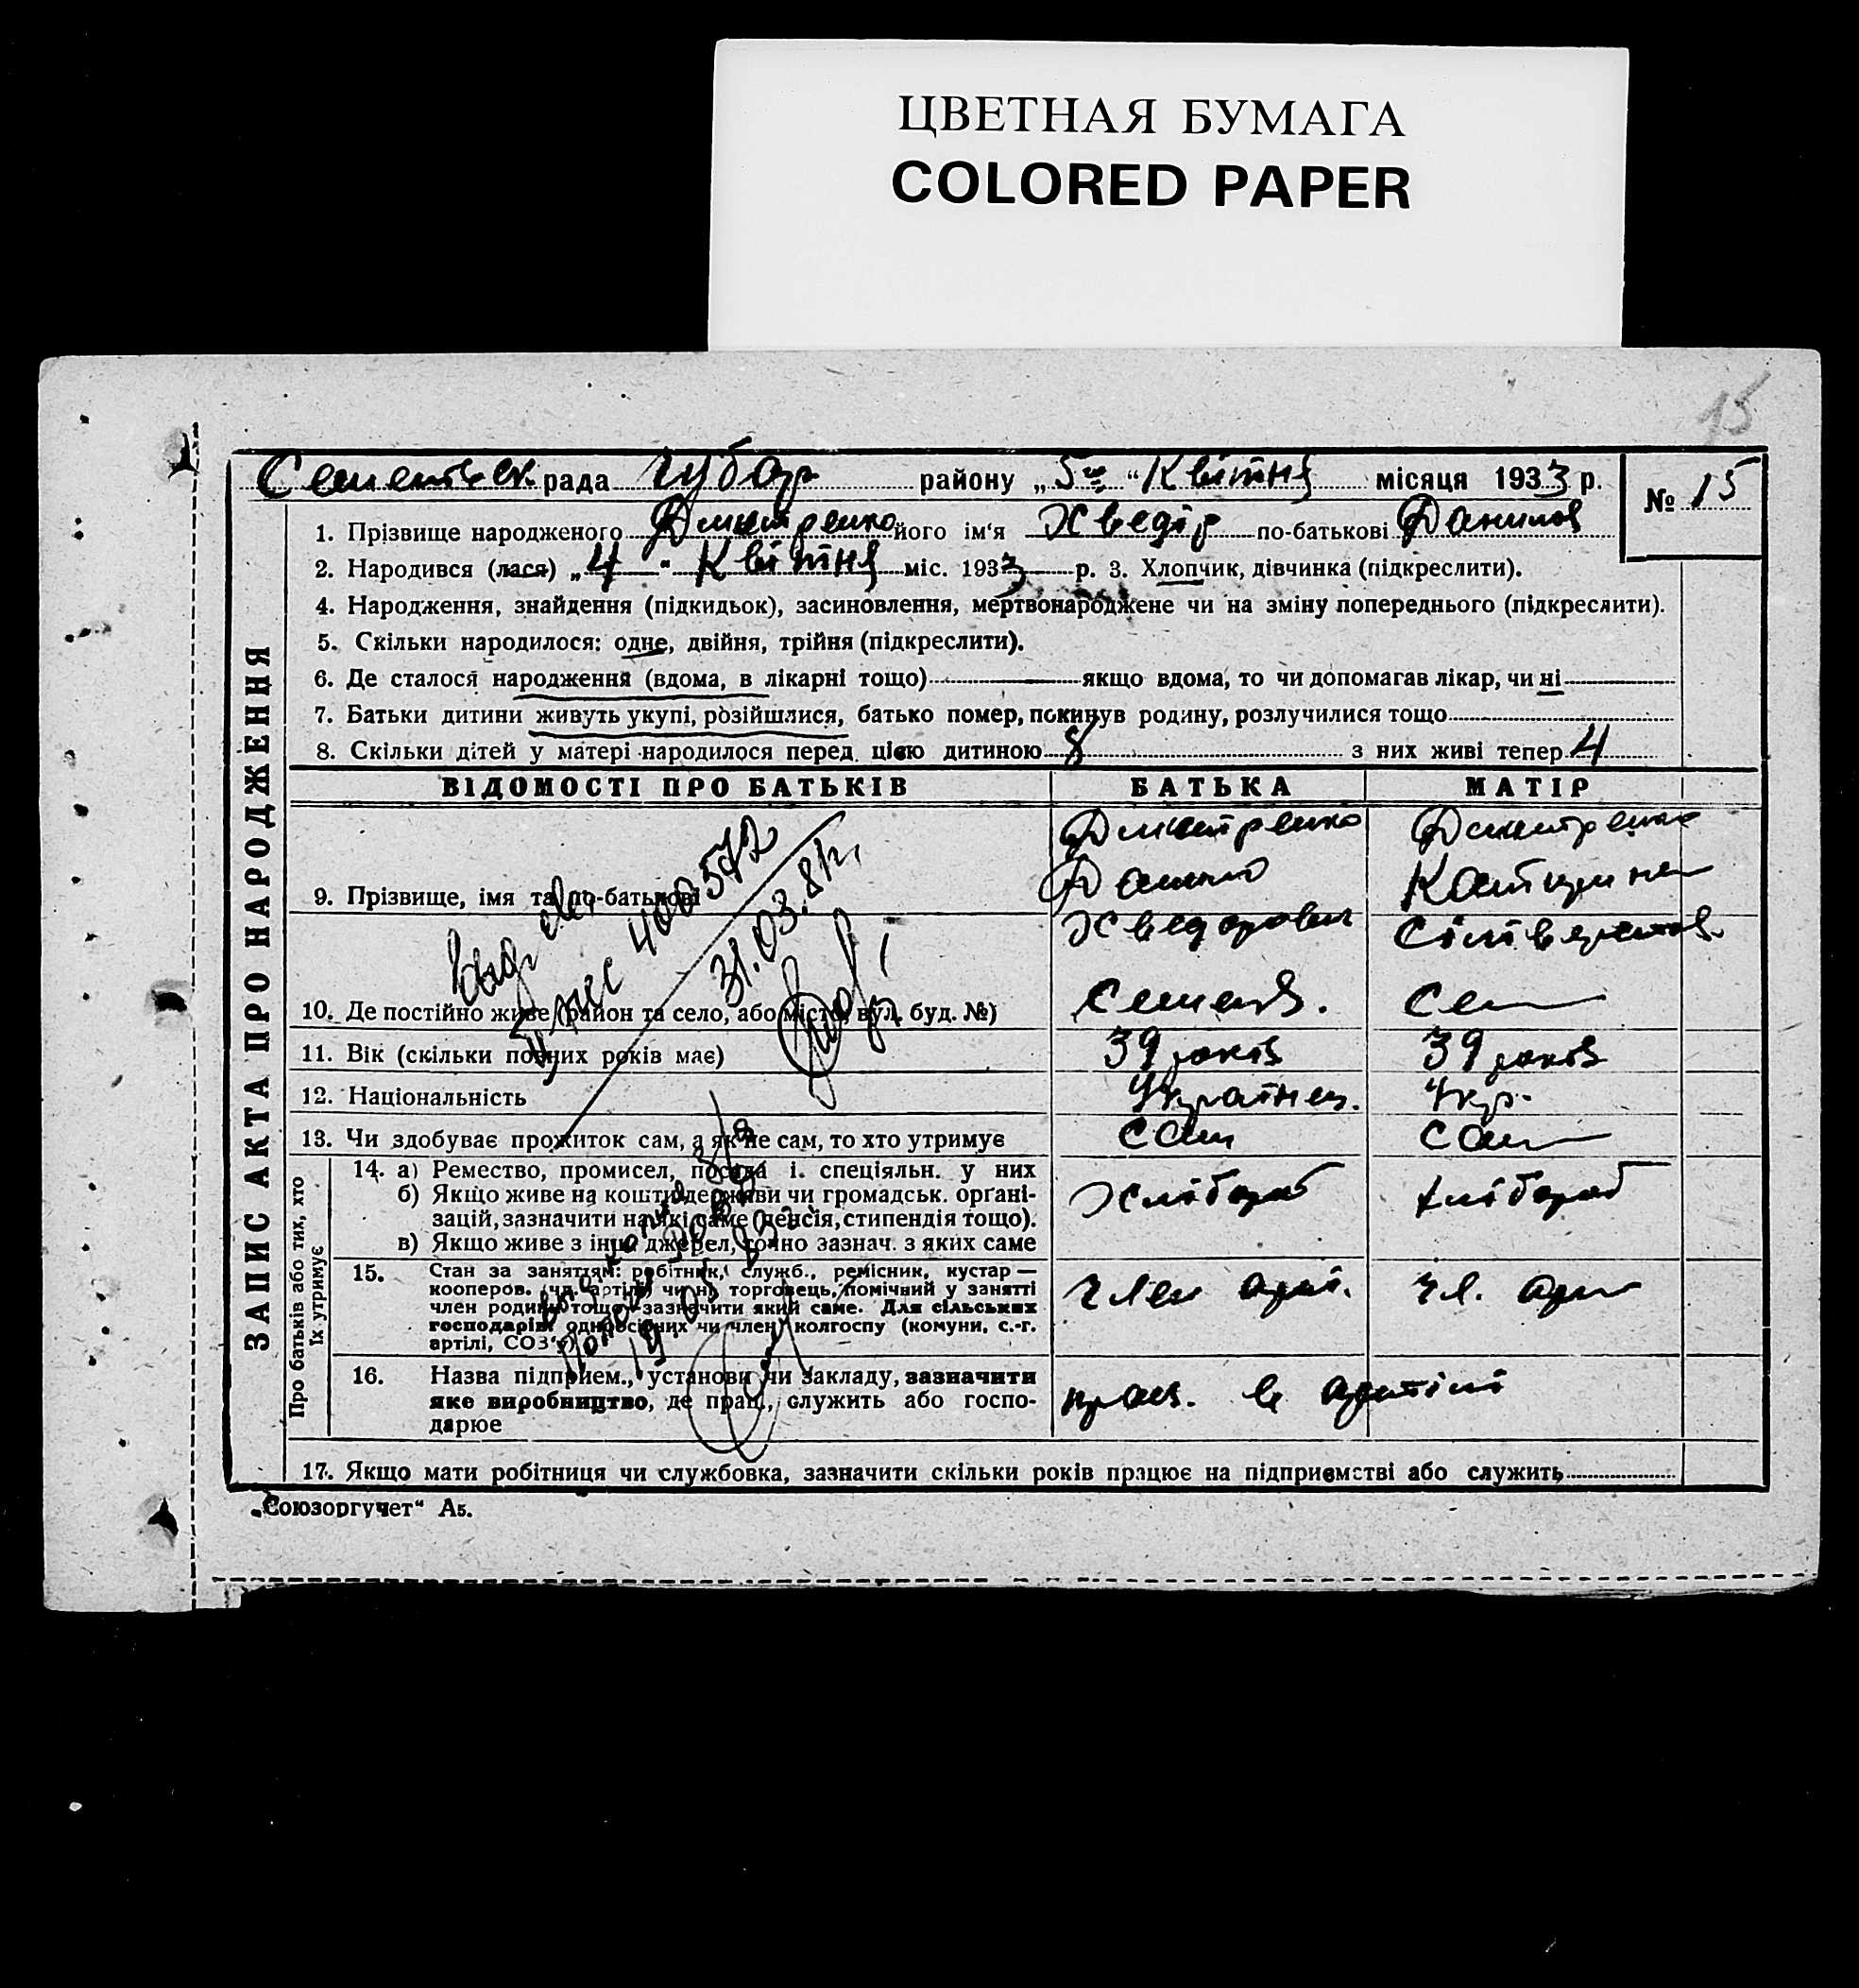 ЦВЕТНАЯ БУМАГА
COLORED PAPER
15
рада Чубар району „ 5го “ Квітня місяця 1933 р.
№ 15
1. Прізвище народженого Дмитренко його ім‘я Хведір по-батькові Данилов
2. Народився (лася) „ 4 " Квітня міс. 1933 р. 3. Хлопчик, дівчинка (підкреслити).
4. Народження, знайдення (підкидьок), засиновлення, мертвонароджене чи на зміну попереднього (підкреслити).
5. Скільки народилося: одне, двійня, трійня (підкреслити).
6. Де сталося народження (вдома, в лікарні тощо) якщо вдома, то чи допомагав лікар, чи ні
7. Батьки дитини живуть укупі, розійшлися, батько помер, покинув родину, розлучилися тощо
8. Скільки дітей у матері народилося перед цією дитиною 8 з них живі тепер 4
ЗАПИС АКТА ПРО НАРОДЖЕННЯ
ВІДОМОСТІ ПРО БАТЬКІВ БАТЬКА МАТІР
9. Прізвище, імя та по-батькові
Дмитренко Дмитренко
Данило Катерина
Хведорович
400572
31.03.81г.
10. Де постійно живе (район та село, або місто, вул. буд. №)
11. Вік (скільки повних років має) 39 років 39 років
12. Національність Українец. Укр.
13. Чи здобуває прожиток сам, а як не сам, то хто утримує сам сам
Про батьків або тих, хто їх утримує
14. а) Ремество, промисел, посада і. спеціяльн. у них
б) Якщо живе на кошти держави чи громадськ. орґані-
зацій, зазначити на які саме (пенсія, стипендія тощо).
в) Якщо живе з інш. джерел, точно зазнач. з яких саме
Хлібороб хлібороб
15. Стан за заняттям: робітник, служб., ремісник, кустар —
кооперов. (чл. артілі) чи ні, торговець, помічний у занятті
член родини тощо, зазначити який саме. Для сільських
господарів: одноосібних чи член колгоспу (комуни, с.-г.
артілі, СОЗ‘у)
Член арт. чл. арт
16. Назва підприєм., установи чи закладу, зазначити
яке виробництво, де прац., служить або госпо-
дарює
прац. в артілі
17. Якщо мати робітниця чи службовка, зазначити скільки років працює на підприємстві або служить
„Союзоргучет“ А5.